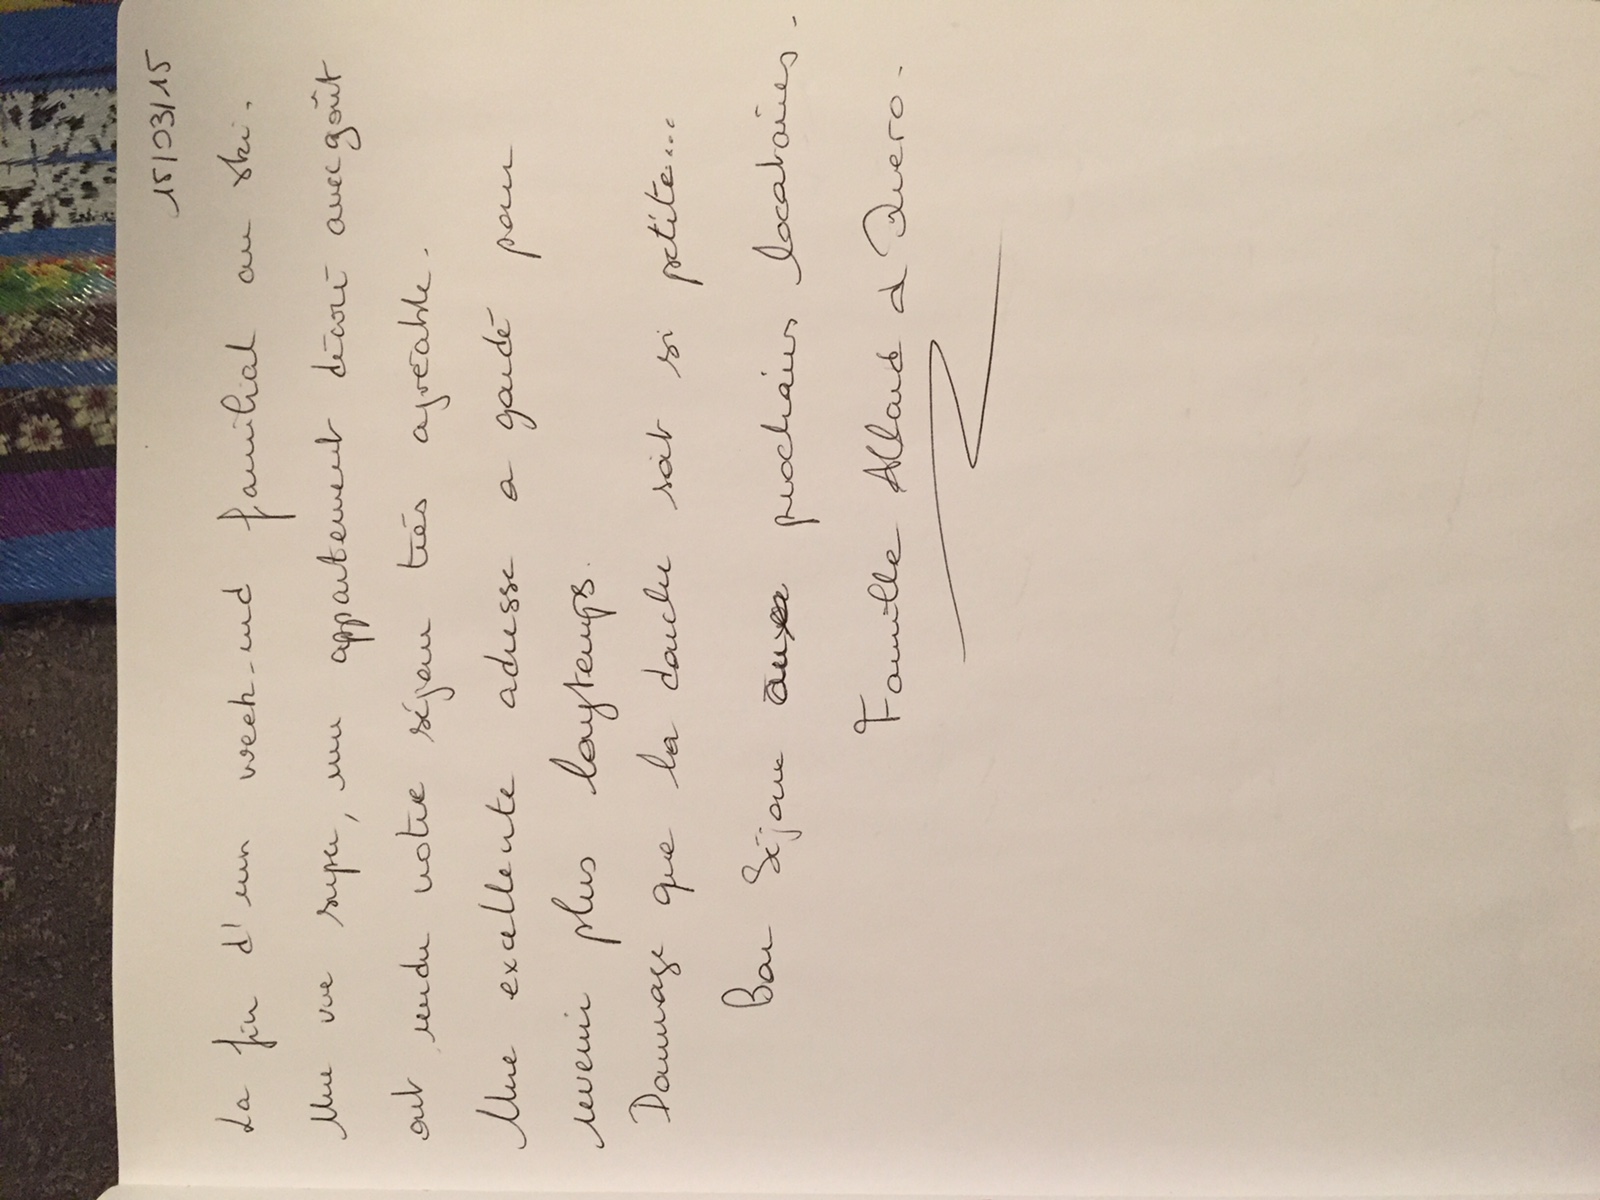 15/03/15
La fin d'un week-end familial au ski.
Une vue super, un appartement décoré avec goût
ont rendu notre séjour très agréable.
Une excellente adresse a garde pour
revenir plus longtemps.
Dommage que la douche soit si petite...
Bon Séjour aux prochains locataires.
Famille Allard & Quero.